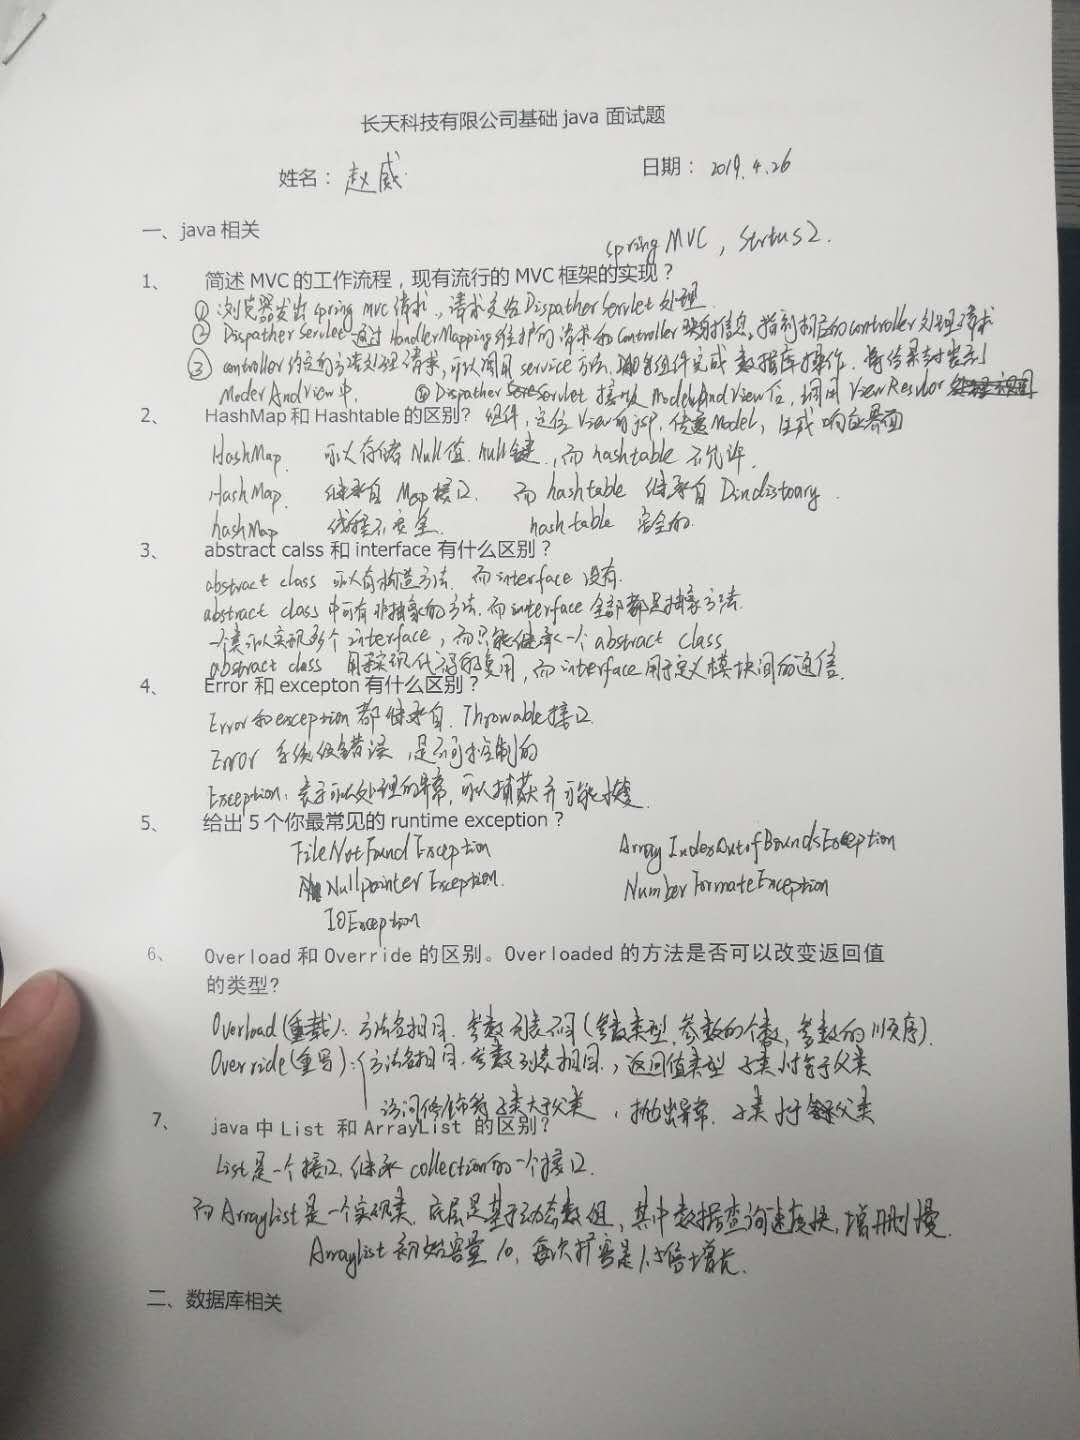 长天科技有限公司基础 java 面试题
姓名：赵威 日期：2019.4.26
一、java 相关
spring MVC，Strtus2.
1、 简述 MVC 的工作流程，现有流行的 MVC 框架的实现？
① 浏览器发出 spring mvc 请求，请求交给 DispatherServlet 处理
② DispatherServlet 通过 HandlerMapping 维护的请求和 Controller 映射信息，找到相应的 controller 处理请求
③ controller 约定的方法处理请求，可以调用 service 方法，组件完成数据库操作．将结果封装到
ModerAndView 中． ④ Dispather Servlet 接收 ModelAndView 后，调用 ViewReslvor
2、 HashMap 和 Hashtable 的区别？ 组件，定位 View 的 jsp，传递 Model，生成响应界面
HashMap． 可以存储 Null 值．null 键，而 hashtable 不允许．
HashMap． 继承自 Map 接口． 而 hashtable 继承自 Dindistoary．
hashMap 线程不安全． hashtable 安全的．
3、 abstract calss 和 interface 有什么区别？
abstract class 可以有构造方法．而 interface 没有．
abstract class 中可有非抽象的方法．而 interface 全部都是抽象方法．
一个类可以实现多个 interface，而只能继承一个 abstract class
abstract class 用于实现代码的复用，而 interface 用于定义模块间的通信．
4、 Error 和 excepton 有什么区别？
Error 和 exception 都继承自．Throwable 接口．
Error 系统级错误，是不可控制的
Exception．表示可以处理的异常，可以捕获并可能恢复．
5、 给出 5 个你最常见的 runtime exception？
FileNotFoundException ArrayIndexOutofBoundsException
NullpointerException． NumberFormateException
IOException
6、 Overload 和 Override 的区别。Overloaded 的方法是否可以改变返回值
的类型?
Overload (重载)：方法名相同．参数列表不同 (参数类型，参数的个数，参数的顺序)．
Override (重写)：方法名相同．参数列表相同．，返回值类型 子类小于等于父类
访问修饰符 子类大于父类，抛出异常．子类小于父类
7、 java 中 List 和 ArrayList 的区别?
List 是一个接口，继承 collection 的一个接口．
而 ArrayList 是一个实现类．底层是基于动态数组，其中数据查询速度快，增删慢．
Arraylist 初始容量 10，每次扩容是 1.5 倍增长．
二、数据库相关